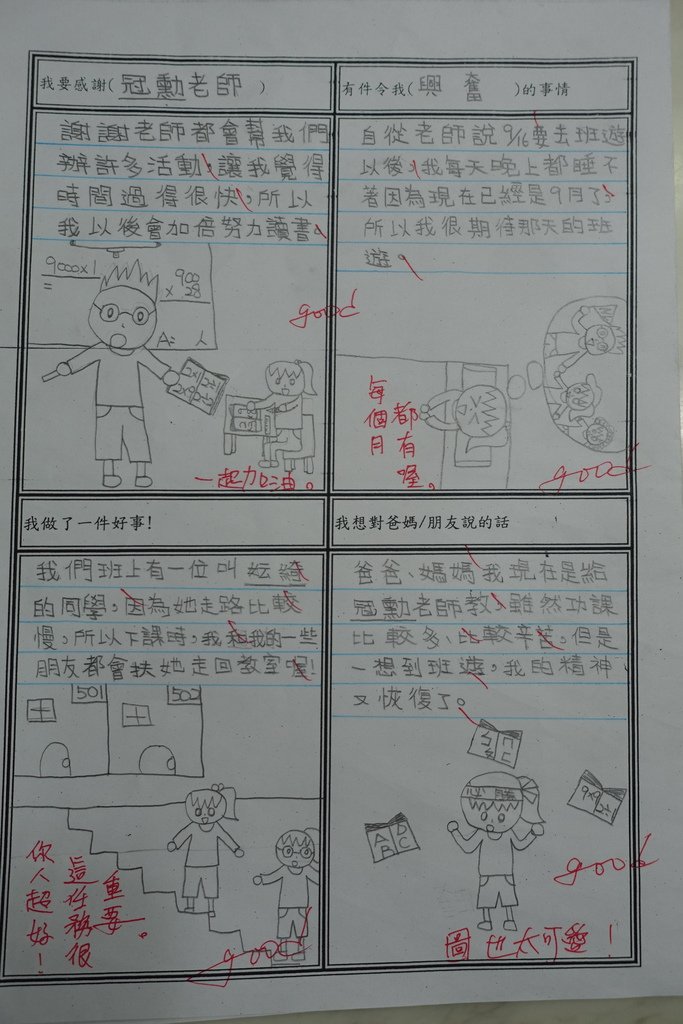 我要感謝(冠勳老師)
謝謝老師都會幫我們
辦許多活動,讓我覺得
時間過得很快,所以
我以後會加倍努力讀書。
9000×1
=
900
×28
A: 人
good
一起加油。
有件令我(興奮)的事情
自從老師說9/16要去班遊
以後,我每天晚上都睡不
著因為現在已經是9月了。
所以我很期待那天的班
遊。
每個月
都有喔。
good
我做了一件好事!
我們班上有一位叫妘緁
的同學,因為她走路比較
慢,所以下課時,我和我的一些
朋友都會扶她走回教室喔!
501
502
你人超好!
這任務很
重要。
good
我想對爸媽/朋友說的話
爸爸、媽媽我現在是給
冠勳老師教,雖然功課
比較多、比較辛苦,但是
一想到班遊,我的精神
又恢復了。
ㄅㄆ
ㄇㄈ
必勝
9×9
A B
D C
good
圖也太可愛!